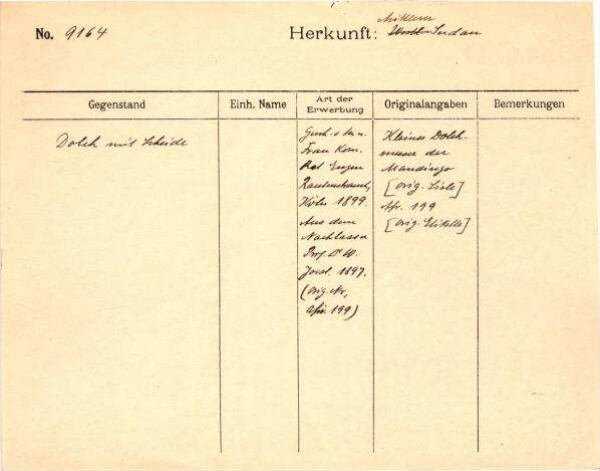 No. 9164
Herkunft: Mittlerer
West-Sudan
Gegenstand
Einh. Name
Art der
Erwerbung
Originalangaben
Bemerkungen
Dolch mit Scheide
Gesch. v. Hn u.
Frau Kom.
Rat Eugen
Rautenstrauch,
Köln 1899.
Aus dem
Nachlasse
Prof. Dr W.
Joest. 1897.
(orig. Nr,
Afr. 199)
Kleines Dolch-
messer der
Mandingo
[orig. Liste]
Afr. 199
[orig. Etikette]